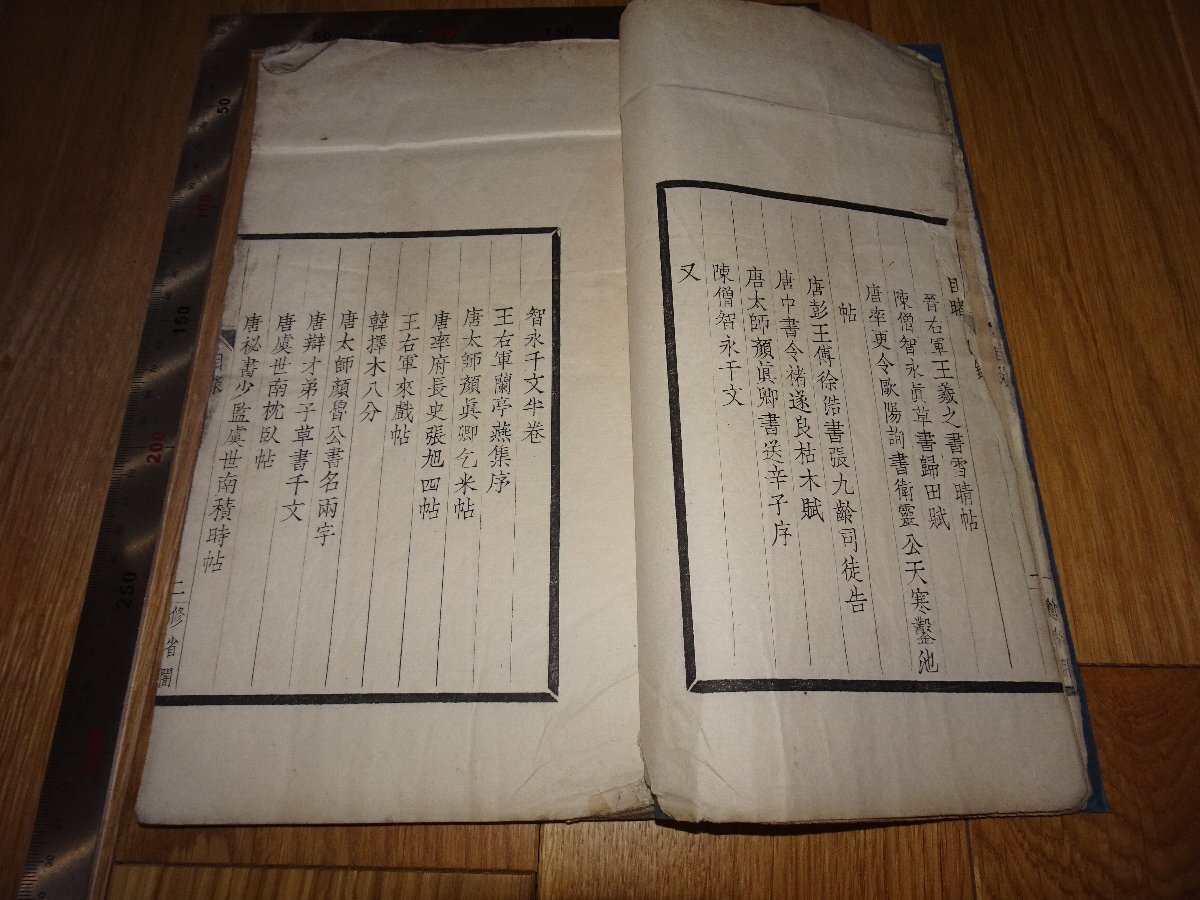 目睹
晉右軍王羲之書雪晴帖
陳僧智永眞草書歸田賦
唐率更令歐陽詢書衛靈公天寒鑿池
帖
唐彭王傅徐浩書張九齡司徒告
唐中書令褚遂良枯木賦
唐太師顏眞卿書送辛子序
陳僧智永千文
又
智永千文半卷
王右軍蘭亭燕集序
唐太師顏眞卿乞米帖
唐率府長史張旭四帖
王右軍來戲帖
韓擇木八分
唐太師顏魯公書名兩字
唐辯才弟子草書千文
唐虞世南枕臥帖
唐秘書少監虞世南積時帖
目錄
二
修省閣
50
100
150
200
250
50
100
150